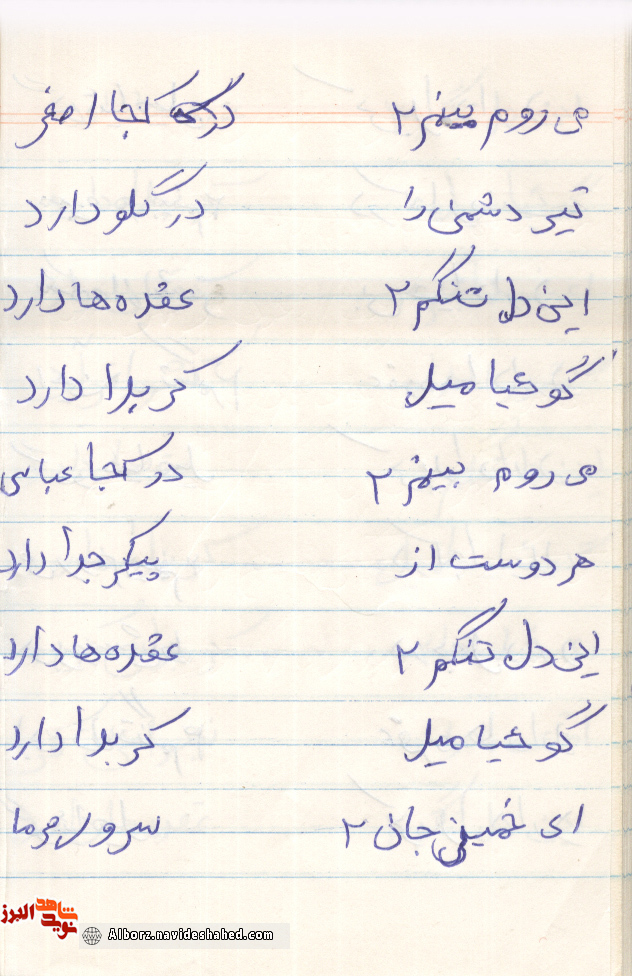 می روم بینم ۲ در کجا اصغر
تیر دشمن را در گلو دارد
این دل تنگم ۲ عقده ها دارد
گوئیا میل کربلا دارد
می روم بینم ۲ در کجا عباس
هر دوست از پیکر جدا دارد
این دل تنگم ۲ عقده ها دارد
گوئیا میل کربلا دارد
ای خمینی جان ۲ سرور ما
نوید شاهد البرز
Alborz.navideshahed.com